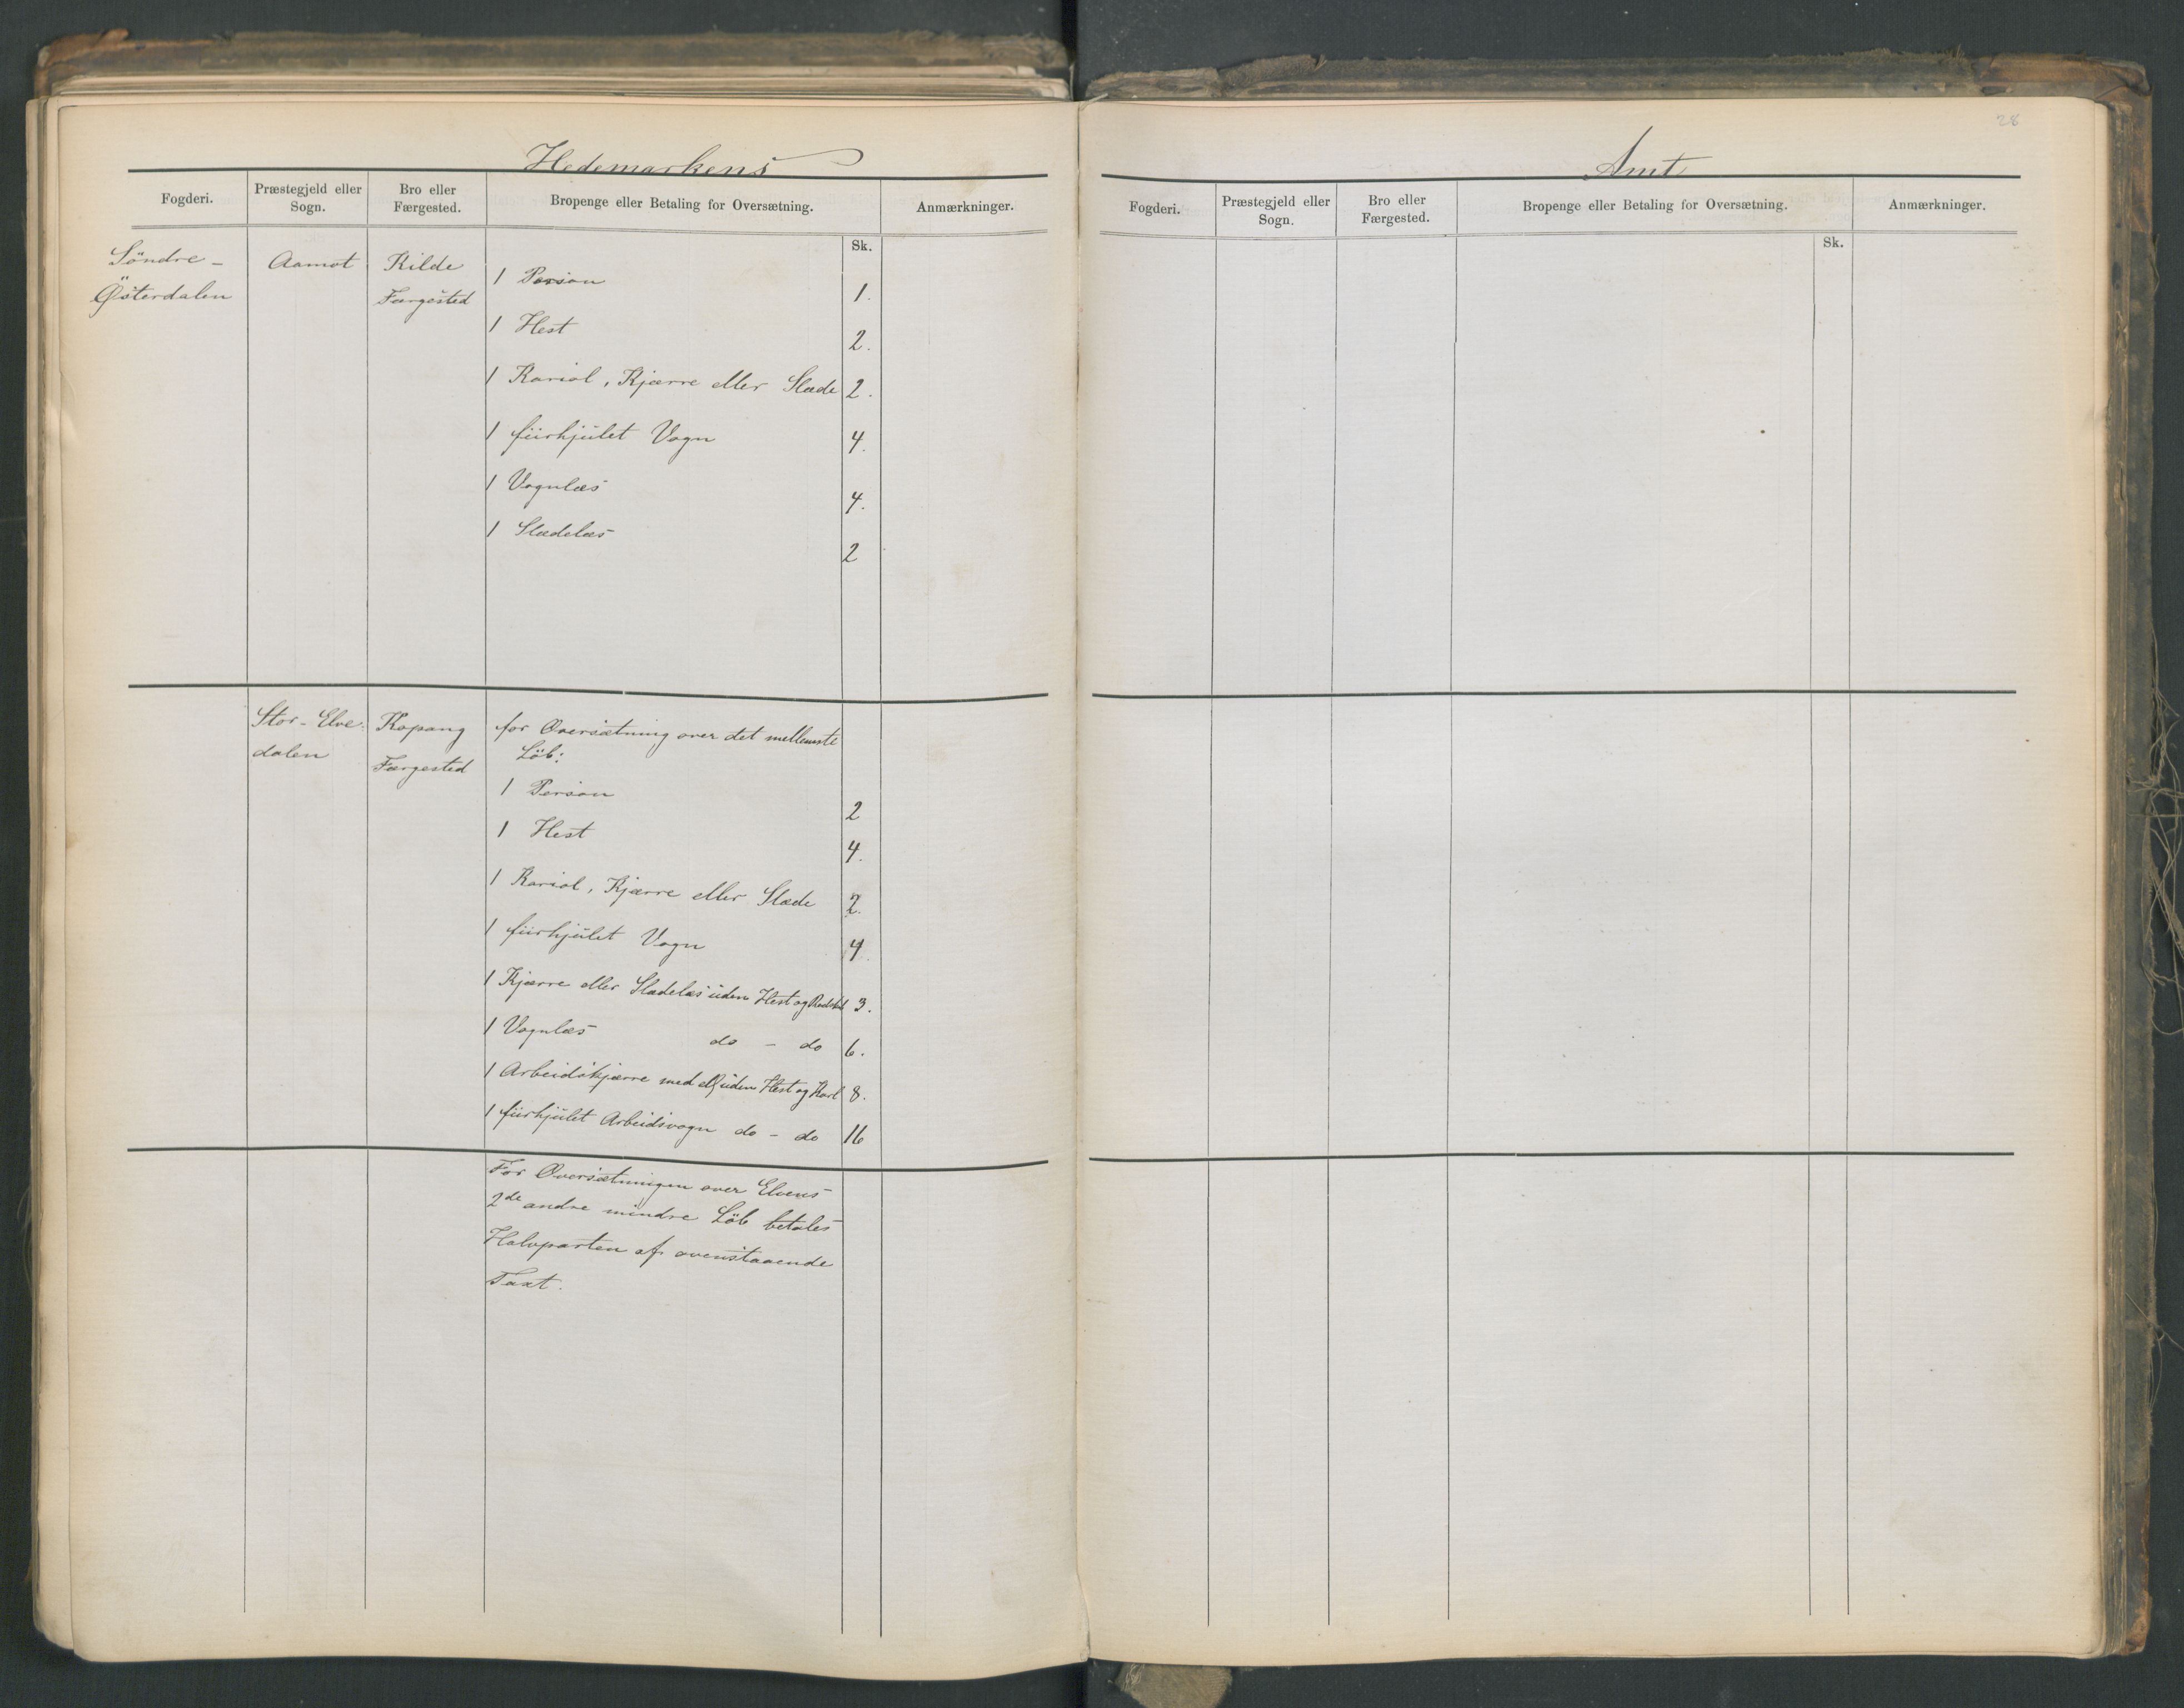 Hedemarkens
Fogderi.
Præstegjeld eller
Sogn.
Bro eller
Færgested.
Bropenge eller Betaling for Oversætning.
Anmærkninger.
Sk.
Söndre-
Österdalen
Aamot
Kilde
Færgested
1 Person 1.
1 Hest 2.
1 Kariol, Kjærre eller Slæde 2.
1 fiirhjulet Vogn 4.
1 Vognlæs 4.
1 Slædelæs 2
Stor-Elve-
dalen
Kopang
Færgested
for Oversætning over det mellemste
Löb:
1 Person 2
1 Hest 4.
1 Kariol, Kjærre eller Slæde 2.
1 fiirhjulet Vogn 4.
1 Kjærre eller Slædelæs uden Hest og Redskab 3.
1 Vognlæs do - do 6.
1 Arbeidskjærre med ell uden Hest og Karl 8.
1 fiirhjulet Arbeidsvogn do - do 16
For Oversætningen over Elvens
2de andre mindre Löb betales
Halvparten af ovenstaaende
Taxt.
28
Amt
Fogderi.
Præstegjeld eller
Sogn.
Bro eller
Færgested.
Bropenge eller Betaling for Oversætning.
Anmærkninger.
Sk.